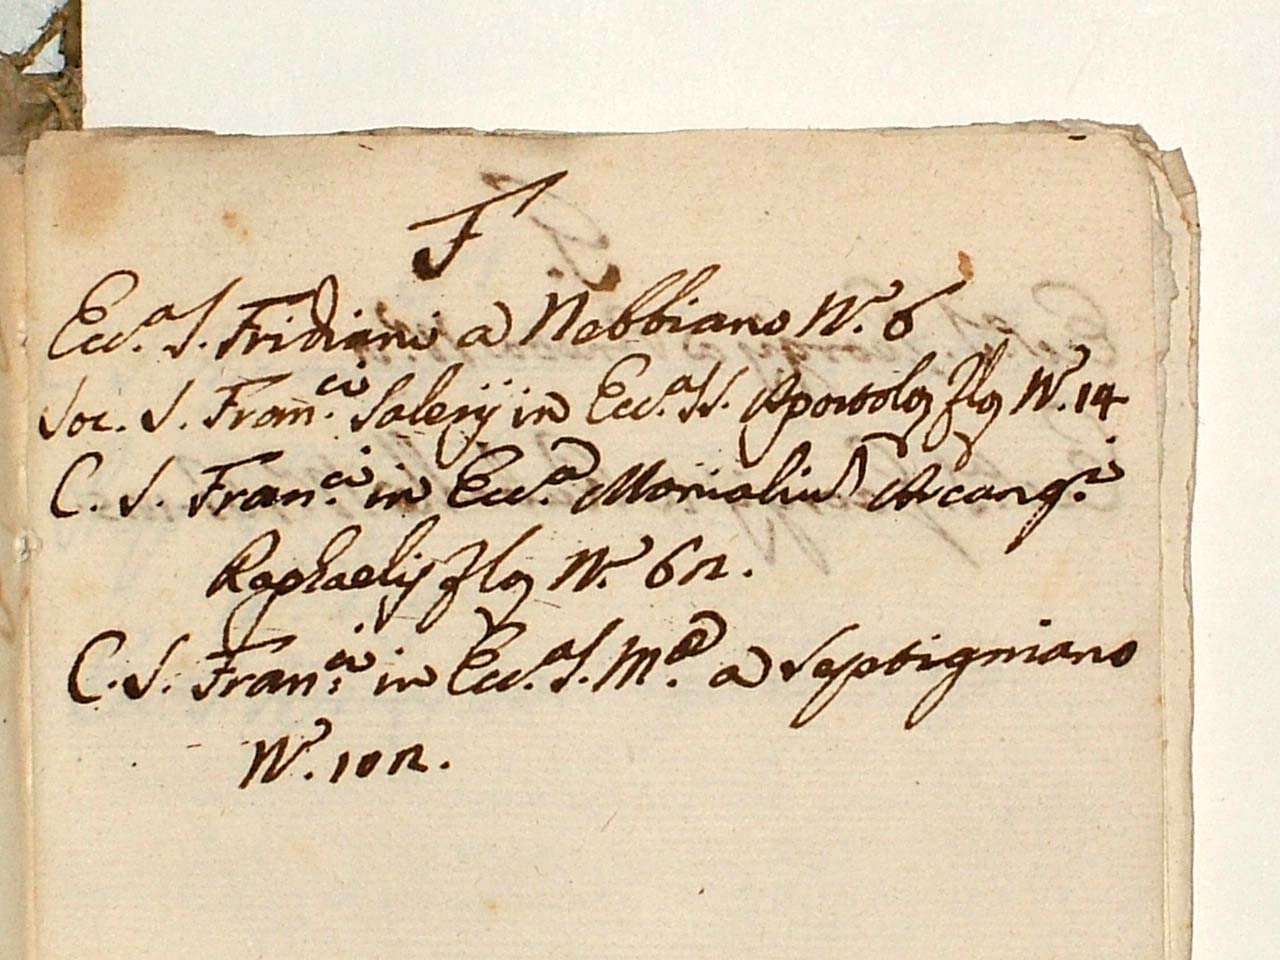 F
Ecc.a S. Fridiani a Nebbiano N. 6
Soc. S. Fran.ci Salesij in Ecc.a SS. Apostolo flo N. 14
C. S. Fran.ci in Ecc.a Monialiu Arcang.i
Raphaelis flo N. 62.
C. S. Fran.ci in Ecc.a S. M.a a Septigniano
N. 102.